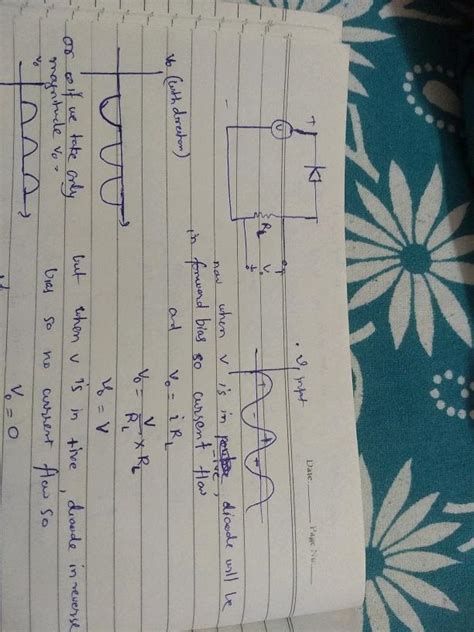 Date ____ Page No. ____
Vi input
+
V
-
RL
Vo
+
+
-
+
-
now when V is in -ive, diode will be
in forward bias so current flow
ad Vo = i RL
Vo = V/RL × RL
Vo = V
but when V is in +ive, diode in reverse
bias so no current flow so
Vo = 0
Vo (with direction)
or if we take only
magnitude Vo =
Vo